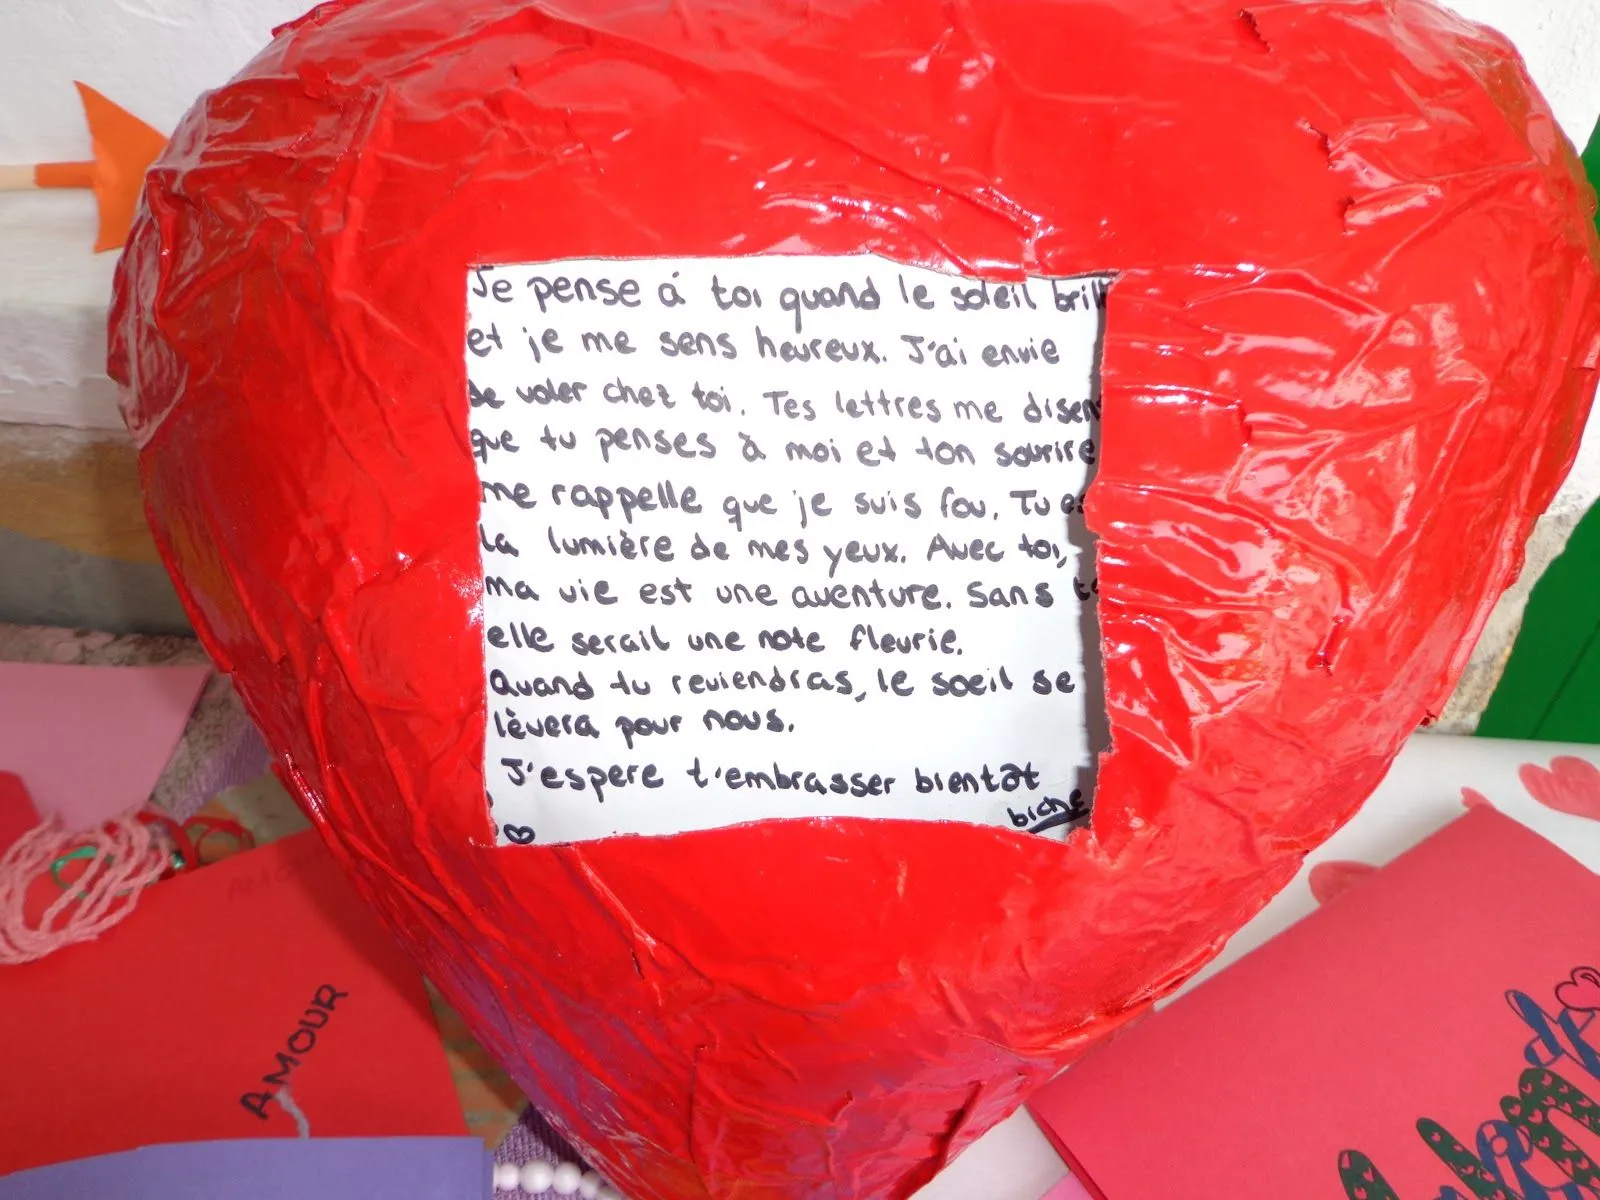 Je pense á toi quand le soleil brill
et je me sens heureux. J'ai envie
de voler chez toi. Tes lettres me disent
que tu penses à moi et ton sourire
me rappelle que je suis fou. Tu es
la lumière de mes yeux. Avec toi,
ma vie est une aventure. Sans to
elle serait une note fleurie.
Quand tu reviendras, le soeil se
lèvera pour nous.
J'espere t'embrasser bientôt
biche
AMOUR